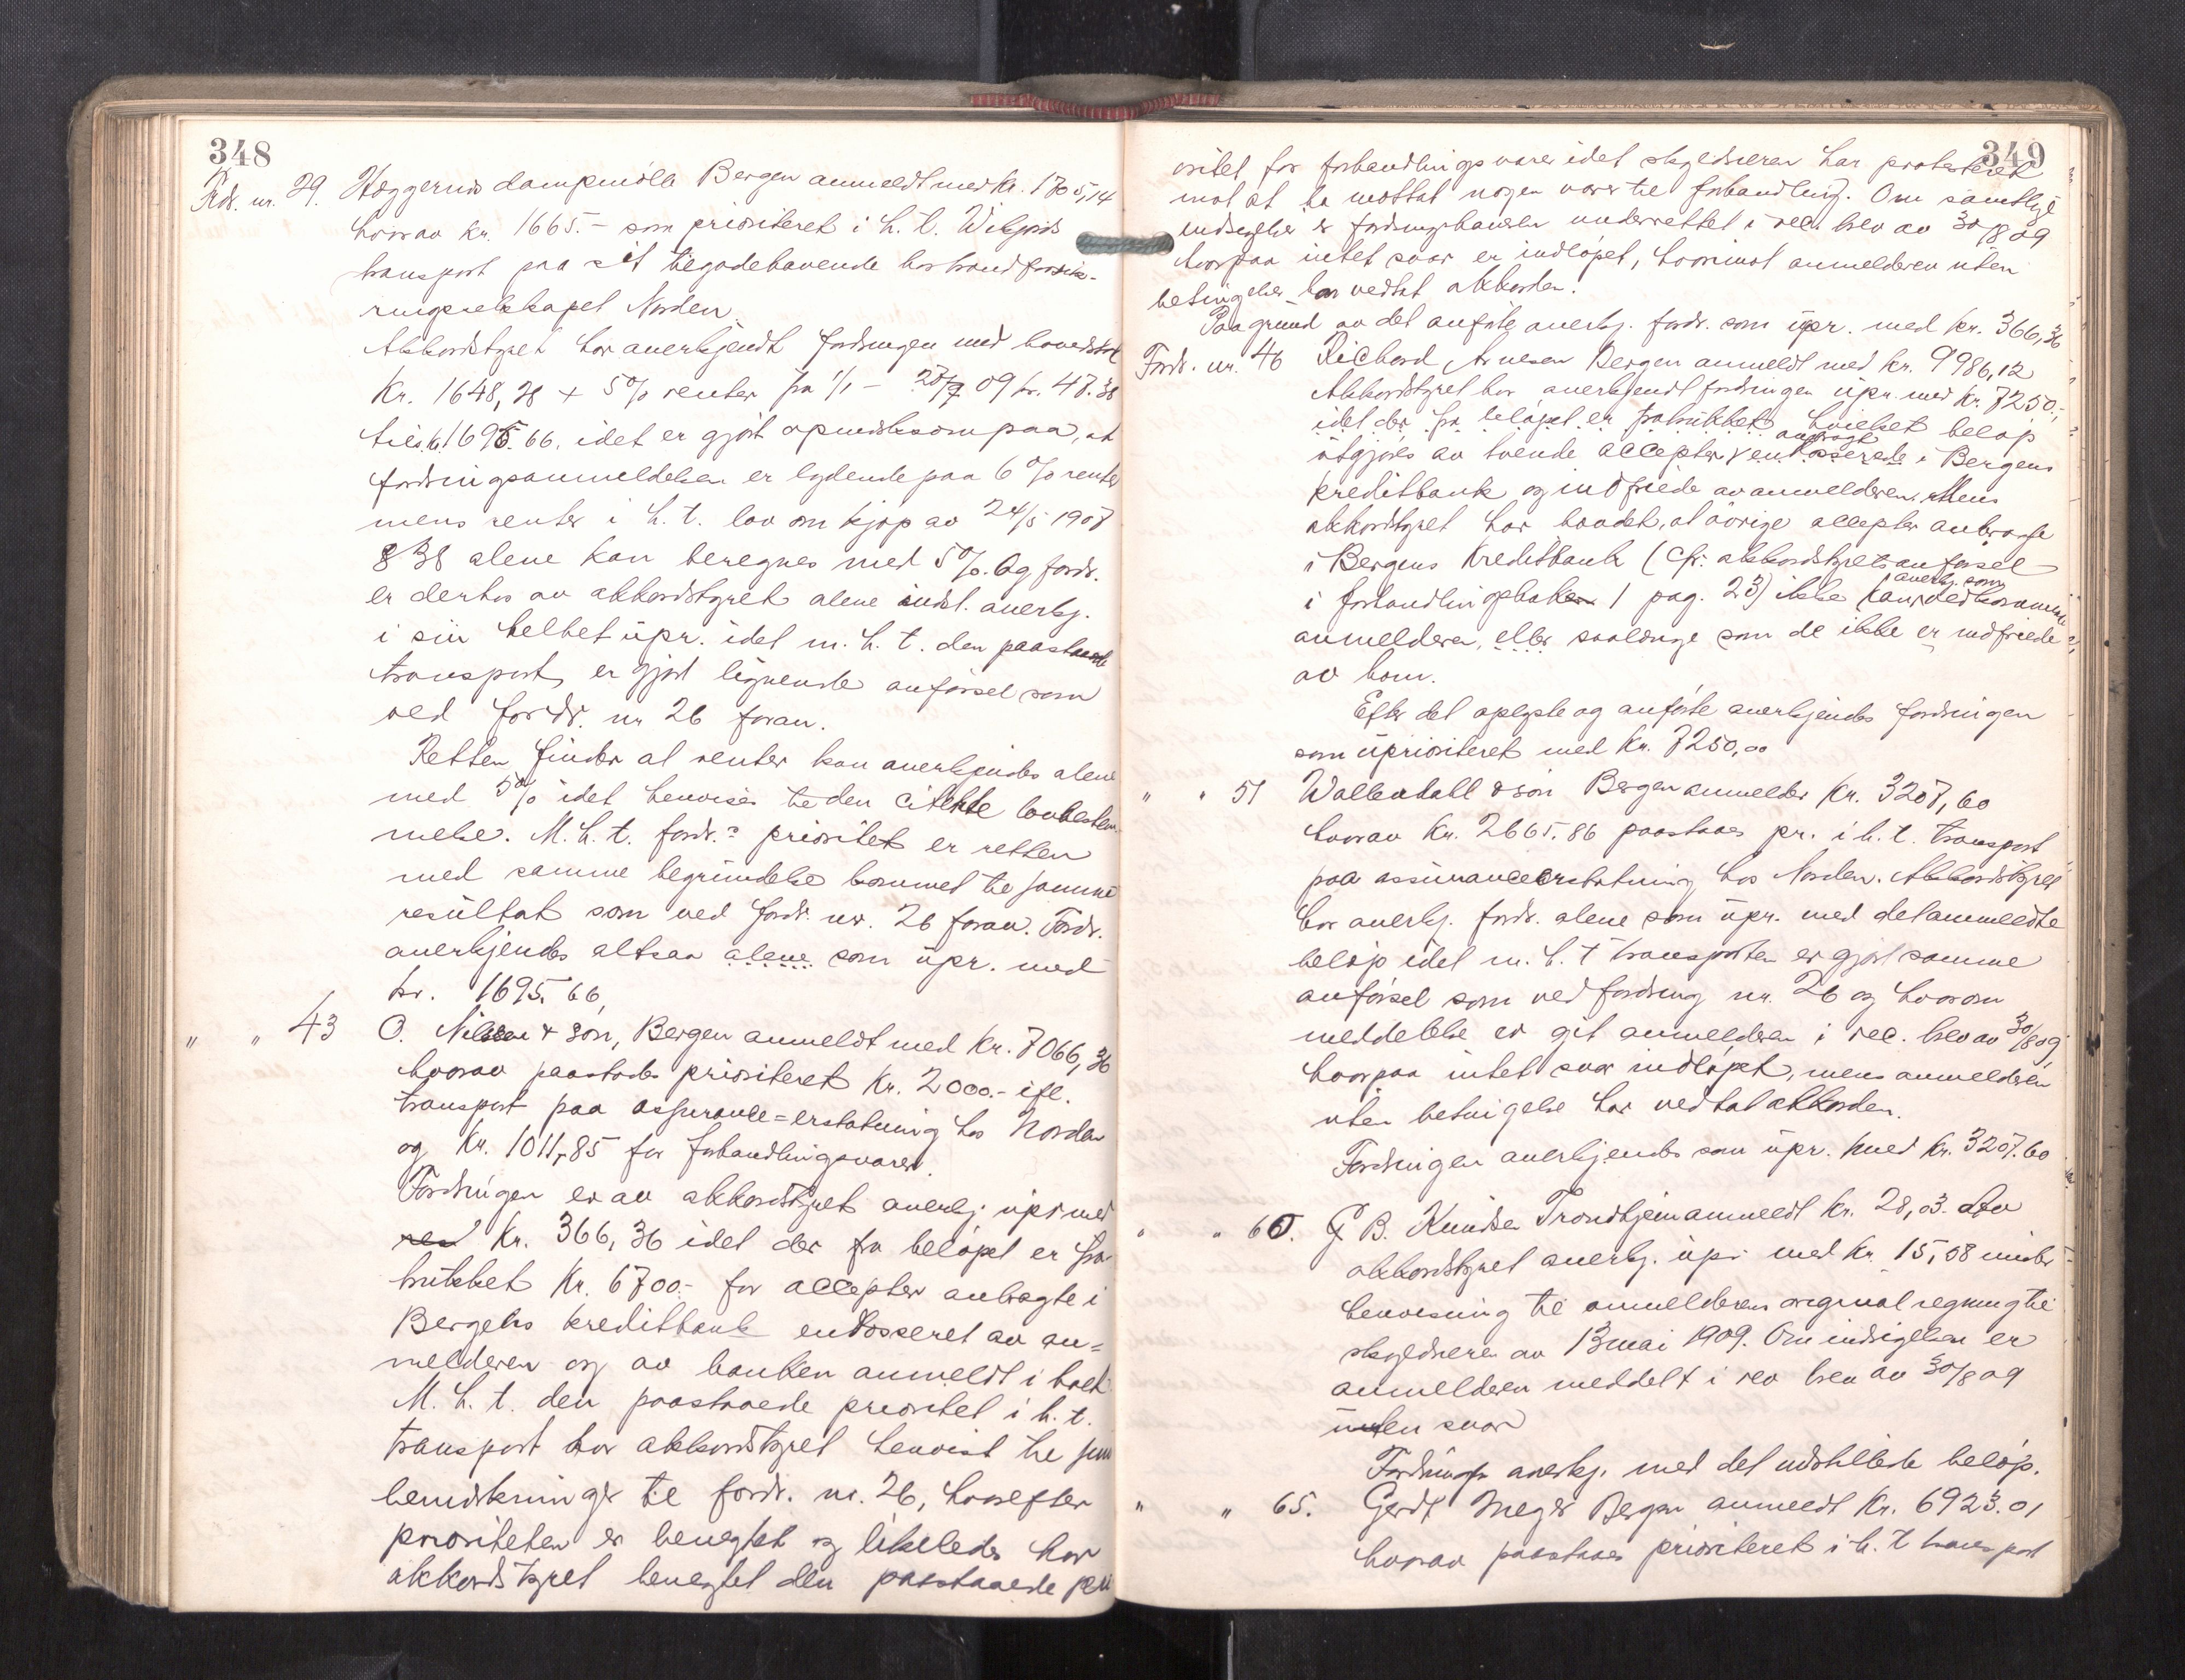 348
Fdr. nr. 29. Hæggernes dampmölle Bergen anmeldt med kr. 1705,14
hvorav kr. 1665.- som prioriteret i h. t.
transport paa sit tilgodehavende hos brandforsik-
ringsselskapet Norden.
Akkordstyret har anerkjendt fordringen med hovedstol
Kr. 1648,28 + 5% renter fra 1/1 - 09 kr. 47.38
tils. kr. 1695.66. idet er gjort opmerksom paa, at
fordringsanmeldelsen er lydende paa 6% renter
mens renter i h. t. lov om kjøp av 24/5 1907
§ 38 alene kan beregnes med 5%. Og fordr.
er derhos av akkordstyret alene indst. anerkj.
i sin helhet upr. idet m. h. t. den paastaaede
transport, er gjort lignende anførsel som
ved fordr. nr 26 foran.
Retten finder at renter kan anerkjendes alene
med 5% idet henvises til den citerte lovbestem-
melse. M. h. t. fordr.s prioritet er retten
med samme begrundelse kommet til samme
resultat som ved fordr. nr. 26 foran. Fordr.
anerkjendes altsaa alene som upr. med
kr. 1695.66,
" " 43 O. Nilssen & søn, Bergen anmeldt med Kr. 7066,36
hvorav paastaaes prioriteret Kr. 2000.- ifl.
transport paa assurance=erstatning hos Norden
og Kr. 1011,85 for forhandlingsvarer.
Fordringen er av akkordstyret anerkj. upr med
Kr. 366,36 idet der fra beløpet er fra-
trukket Kr. 6700.- for accepter anbragte i
Bergens kreditbank endosseret av an=
melderen og av banken anmeldt i boet.
M. h. t. den paastaaede prioritet i h. t.
transport har akkordstyret henvist til sine
bemerkninger til fordr. nr. 26, hvorefter
prioriteten er benegtet og likeledes har
akkordstyret benegtet den paastaaede pri
349
oritet for forhandlingsvarer idet skyldneren har protesteret
mot at ha mottat nogen varer til forhandling. Om samtlige
indsigelser er fordringshaveren underrettet i rec. brev av 30/8 09
hvorpaa intet svar er indløpet, hvorimot anmelderen uten
betingelser har vedtat akkorden.
Paa grund av det anførte anerkj. fordr. som upr. med Kr. 366,36
Fordr. nr. 46 Richard Arnesen Bergen anmeldt med kr. 9986,12
Akkordstyret har anerkjendt fordringen upr. med Kr. 7250,-
idet der fra beløpet er fratrukket hvilket beløp
utgjøres av tvende accepter anbragt endosserede i Bergens
kreditbank og indfriede av anmelderen. Mens
akkordstyret har hævdet, at øvrige accepter anbragt
i Bergens Kreditbank (cfr. akkordstyrets anførsel
i forhandlingsboken 1 pag. 23) ikke kan anerkj. som vedkommende
anmelderen, eller saalænge som de ikke er indfriede
av ham.
Efter det oplyste og anførte anerkjendes fordringen
som uprioriteret med Kr. 7250,00
" " 51 Wallendahl & søn Bergen anmelder Kr. 3207,60
hvorav Kr. 2665.86 paastaaes pr. i h. t. transport
paa assuranceerstatning hos Norden. Akkordstyret
har anerkj. fordr. alene som upr. med det anmeldte
beløp idet m. h. t transporten er gjort samme
anførsel som ved fordring nr. 26 og hvorom
meddelelse er git anmelderen i rec. brev av 30/8 09
hvorpaa intet svar indløpet, mens anmelderen
uten betingelse har vedtat akkorden.
Fordringen anerkjendes som upr. med Kr. 3207.60
" " 60. G B. Knudsen Trondhjem anmeldt Kr. 28,03. Av
akkordstyret anerkj. upr. med Kr. 15,58 under
henvisning til anmelderens original regning til
skyldneren av 13 mai 1909. Om indsigelsen er
anmelderen meddelt i rec brev av 30/8 09
uten svar
Fordringen anerkj. med det indstillede beløp.
" " 65. Gerdt Meyer Bergen anmeldt Kr. 6923.01
hvorav paastaaes prioriteret i h. t transport